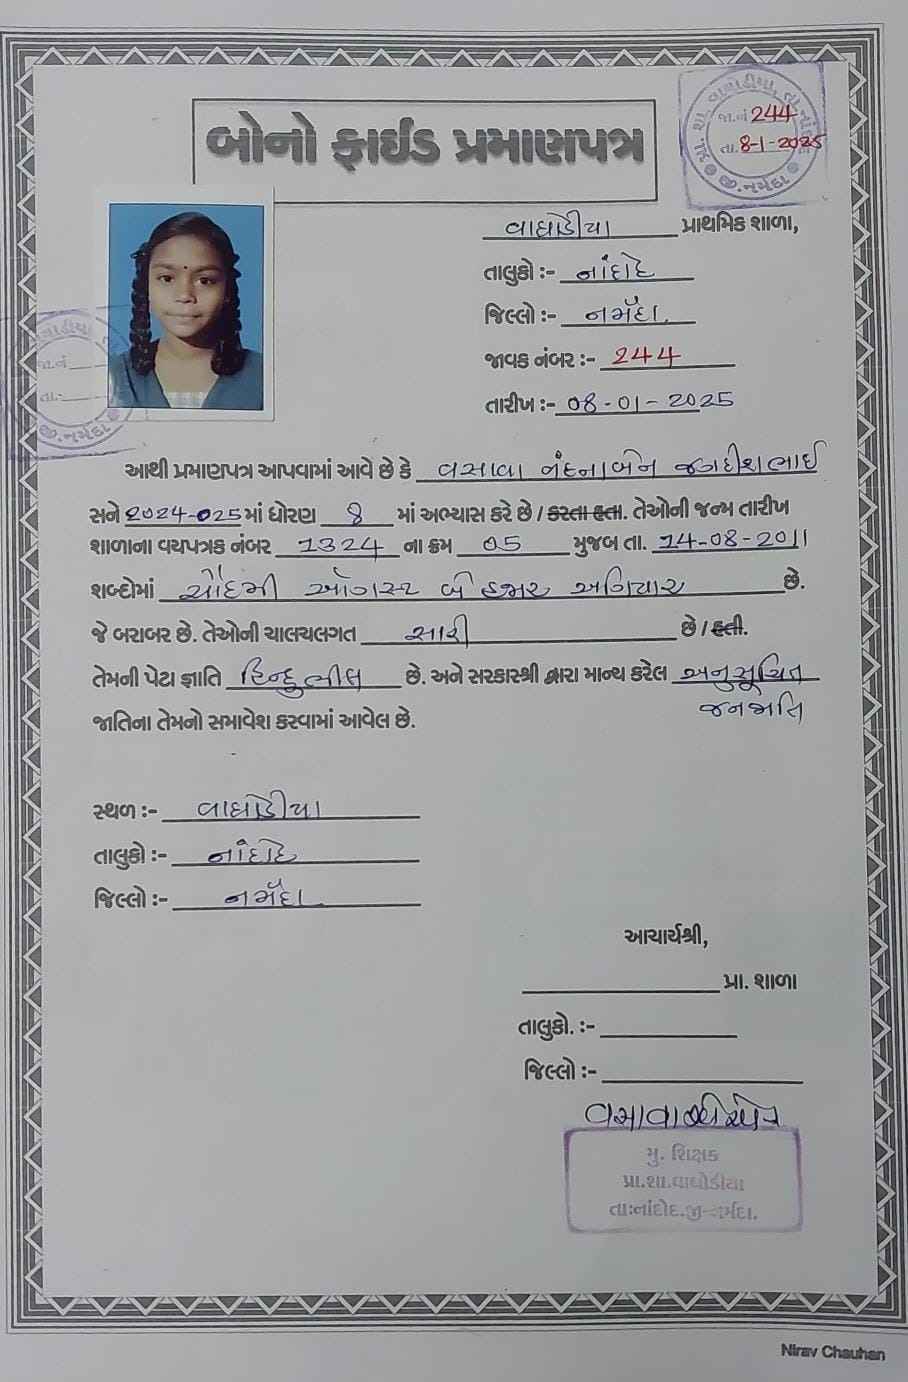 બોનો ફાઈડ પ્રમાણપત્ર
પ્રા. શા. વાઘોડીયા, તા. નાંદોદ
જા.નં 244
તા. 8-1-2025
જી. નર્મદા
વાઘોડીયા પ્રાથમિક શાળા,
તાલુકો :- નાંદોદ
જિલ્લો :- નર્મદા.
જાવક નંબર :- 244
તારીખ :- 08-01-2025
વાઘોડીયા
જા.નં
તા.
જી. નર્મદા
આથી પ્રમાણપત્ર આપવામાં આવે છે કે વસાવા નંદનાબેન જગદીશભાઈ
સને 2024-025 માં ધોરણ 8 માં અભ્યાસ કરે છે / કરતા હતા. તેઓની જન્મ તારીખ
શાળાના વયપત્રક નંબર 1324 ના ક્રમ 05 મુજબ તા. 14-08-2011
શબ્દોમાં ચૌદમી ઓગસ્ટ બે હજાર અગિયાર છે.
જે બરાબર છે. તેઓની ચાલચલગત સારી છે / હતી.
તેમની પેટા જ્ઞાતિ હિન્દુ ભીલ છે. અને સરકારશ્રી દ્વારા માન્ય કરેલ અનુસૂચિત
જનજાતિ
જાતિના તેમનો સમાવેશ કરવામાં આવેલ છે.
સ્થળ :- વાઘોડીયા
તાલુકો :- નાંદોદ
જિલ્લો :- નર્મદા.
આચાર્યશ્રી,
પ્રા. શાળા
તાલુકો. :-
જિલ્લો :-
વસાવા
મુ. શિક્ષક
પ્રા.શા.વાઘોડીયા
તા:નાંદોદ.જી-નર્મદા.
Nirav Chauhan